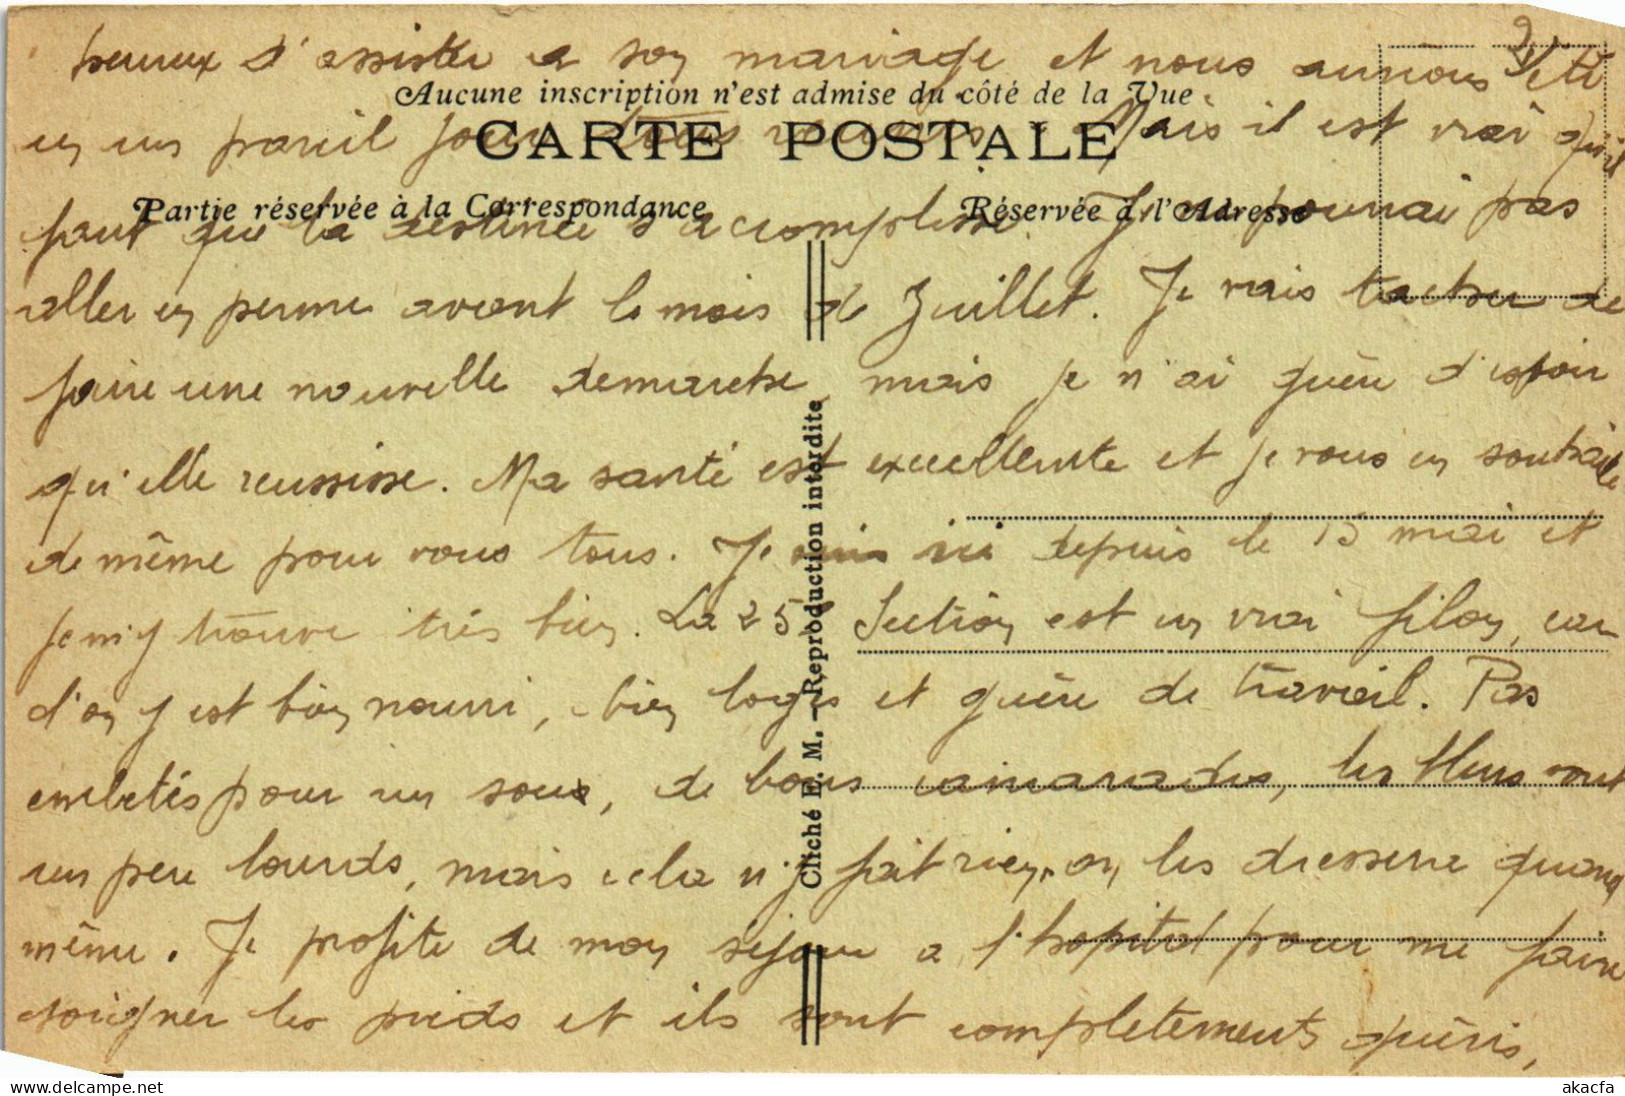 heureux d'assister a son mariage et nous aurions été
Aucune inscription n'est admise du côté de la Vue
en un pareil jour tous réunis. Mais il est vrai qu'il
CARTE POSTALE
Partie réservée à la Correspondance
Réservée à l'Adresse
faut que la destinée s'accomplisse. Je ne pourrai pas
aller en perme avant le mois de Juillet. Je vais tacher de
faire une nouvelle demarche, mais je n'ai guère d'espoir
qu'elle reussisse. Ma santé est excellente et je vous en souhaite
de même pour vous tous. Je suis ici depuis le 15 mai et
je m'y trouve très bien. La 25e Section est un vrai filon, car
l'on y est bien nourri, bien logés et guère de travail. Pas
embetés pour un sou, de bons camarades, les bleus sont
un peu lourds, mais cela n'y fait rien, on les dressera quand
même. Je profite de mon sejour a l'hopital pour me faire
soigner les pieds et ils sont completements guéris,
Cliché E. M. - Reproduction interdite
akacfa
www.delcampe.net